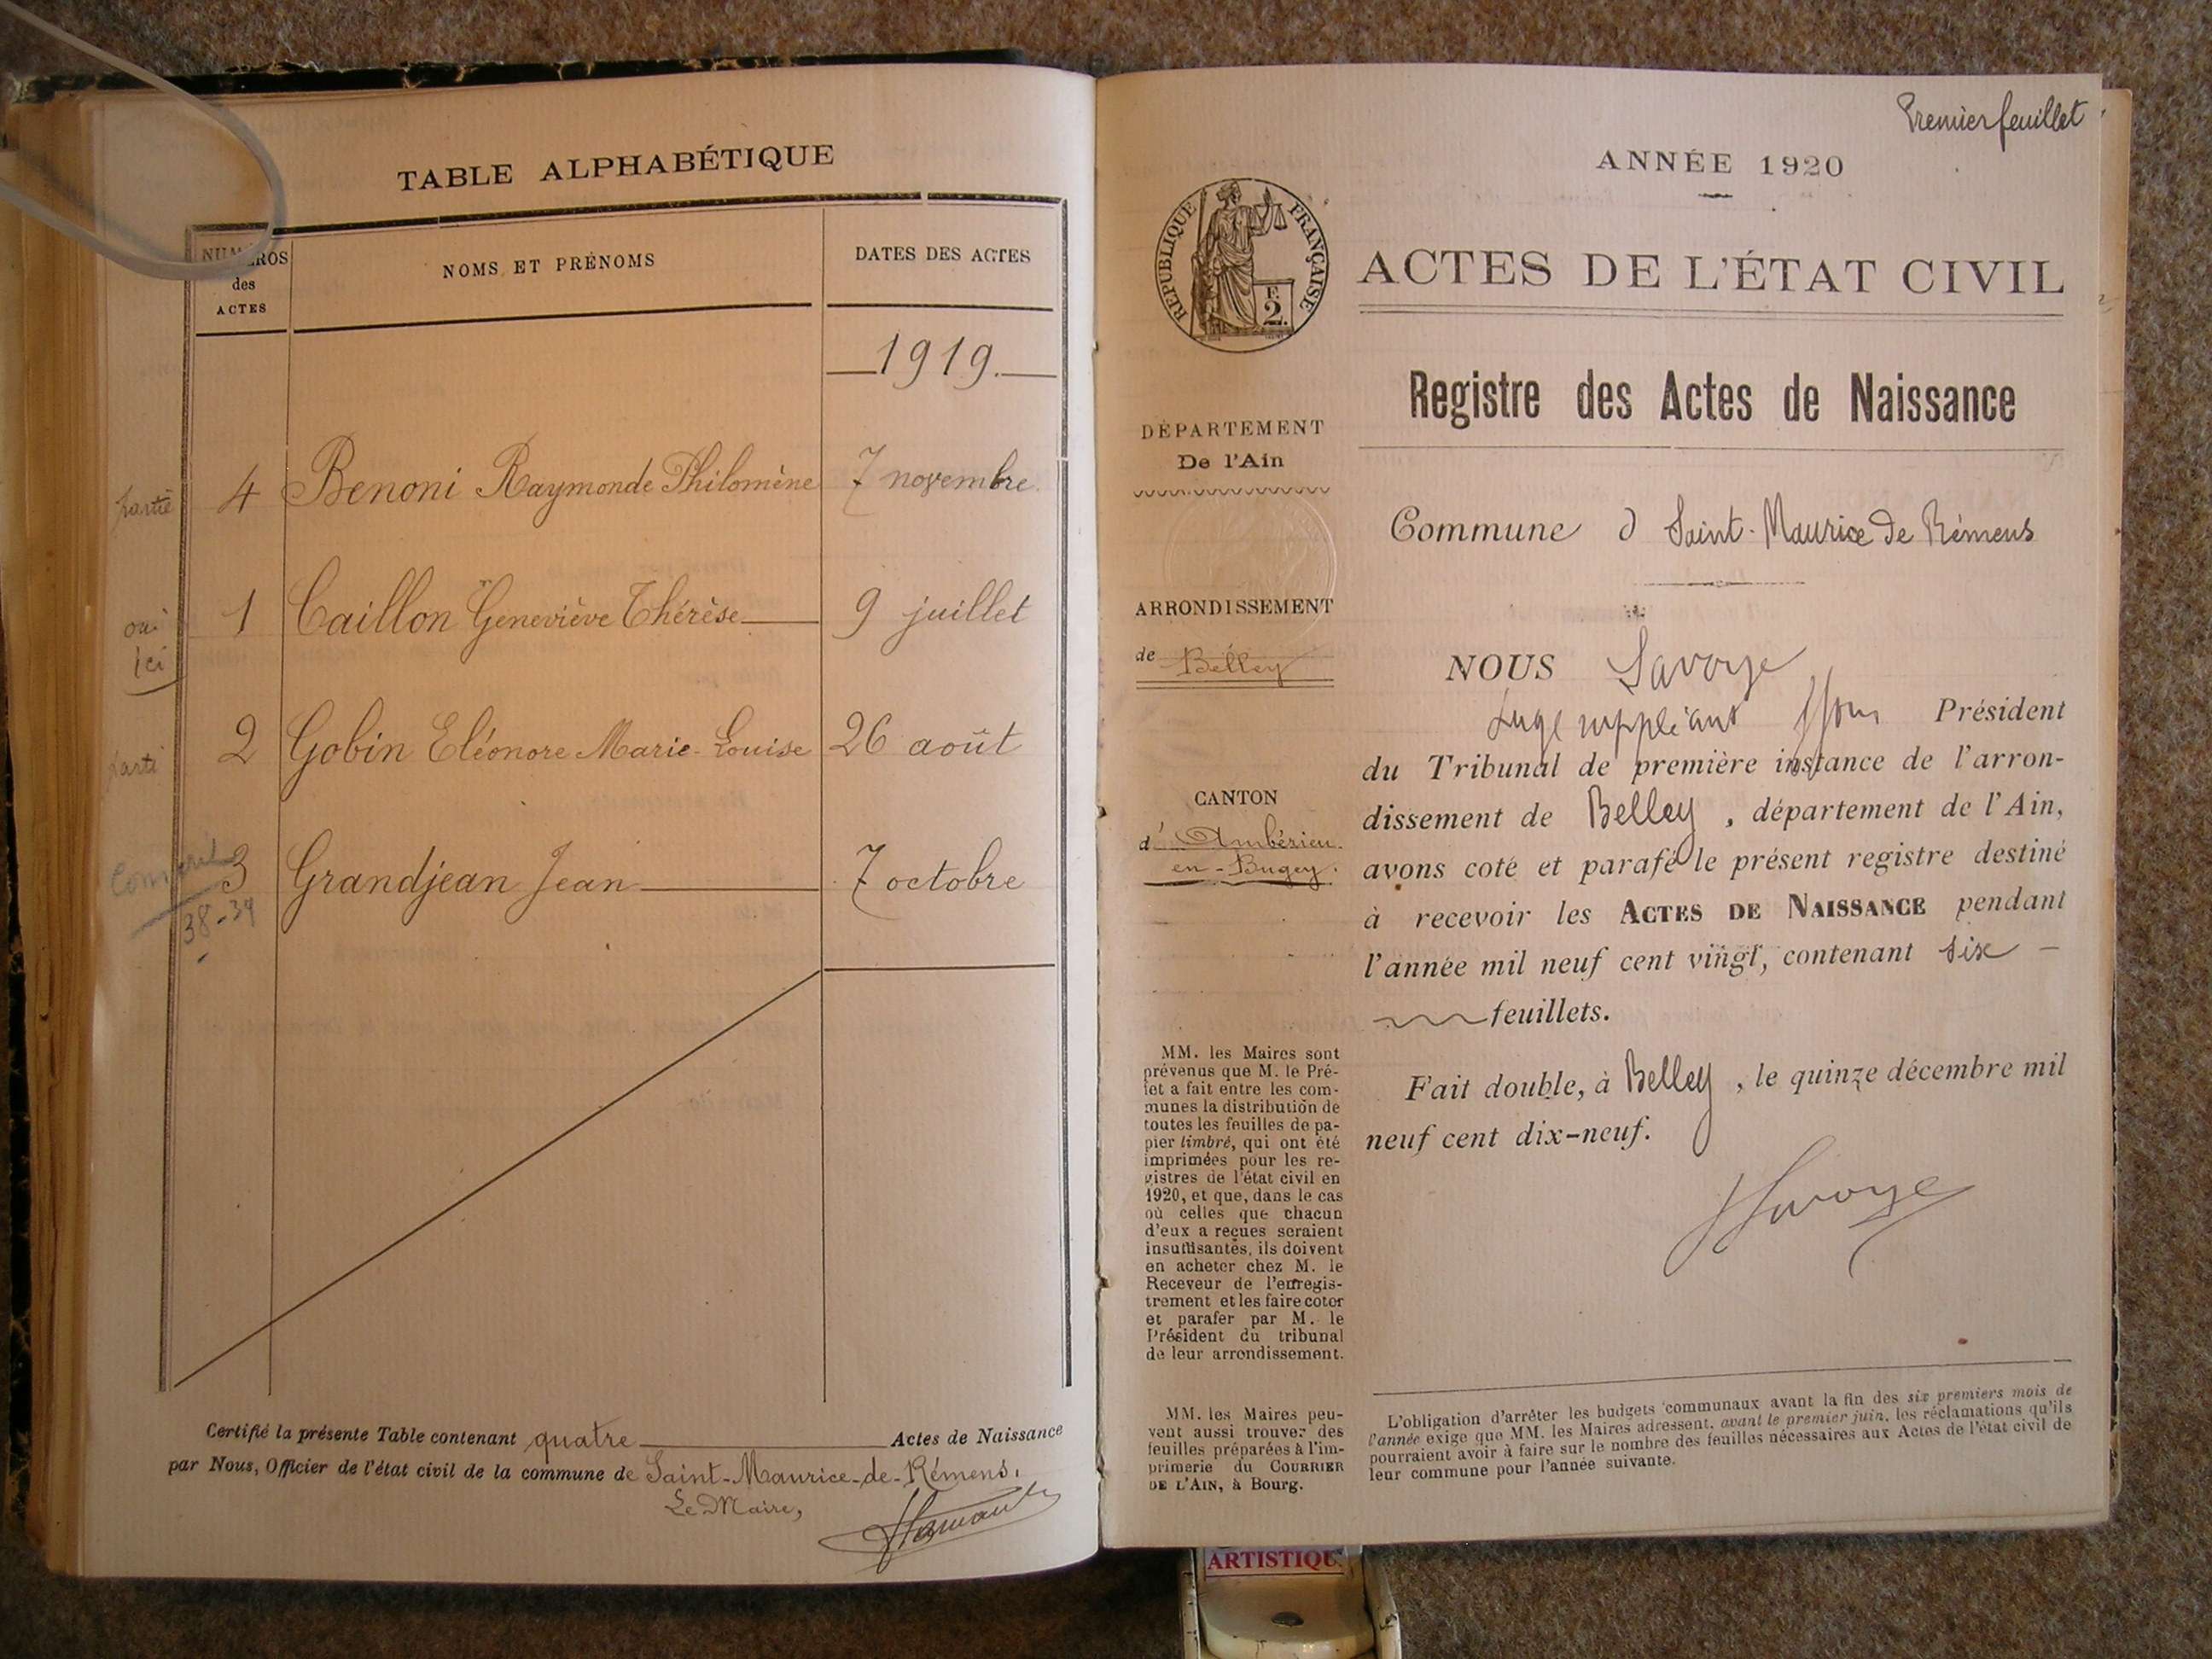 TABLE ALPHABÉTIQUE
NUMÉROS
des
ACTES
NOMS ET PRÉNOMS
DATES DES ACTES
1919.
partie 4 Benoni Raymonde Philomène 7 novembre.
oui
ici
1 Caillon Geneviève Thérèse 9 juillet
parti 2 Gobin Eléonore Marie-Louise 26 août
3 Grandjean Jean 7 octobre
38-39
Certifié la présente Table contenant quatre Actes de Naissance
par Nous, Officier de l'état civil de la commune de Saint-Maurice-de-Rémens.
Le Maire,
Premier feuillet
ANNÉE 1920
RÉPUBLIQUE FRANÇAISE
F.
2.
ACTES DE L'ÉTAT CIVIL
Registre des Actes de Naissance
DÉPARTEMENT
De l'Ain
ARRONDISSEMENT
de Belley
CANTON
d' Ambérieu-
en-Bugey.
MM. les Maires sont
prévenus que M. le Pré-
fet a fait entre les com-
munes la distribution de
toutes les feuilles de pa-
pier timbré, qui ont été
imprimées pour les re-
gistres de l'état civil en
1920, et que, dans le cas
où celles que chacun
d'eux a reçues seraient
insuffisantes, ils doivent
en acheter chez M. le
Receveur de l'enregis-
trement et les faire coter
et parafer par M. le
Président du tribunal
de leur arrondissement.
MM. les Maires peu-
vent aussi trouver des
feuilles préparées à l'im-
primerie du COURRIER
DE L'AIN, à Bourg.
Commune d Saint-Maurice de Rémens
NOUS Savoye
Juge suppléant Président
du Tribunal de première instance de l'arron-
dissement de Belley, département de l'Ain,
avons coté et parafé le présent registre destiné
à recevoir les ACTES DE NAISSANCE pendant
l'année mil neuf cent vingt, contenant six
feuillets.
Fait double, à Belley, le quinze décembre mil
neuf cent dix-neuf.
Savoye
L'obligation d'arrêter les budgets communaux avant la fin des six premiers mois de
l'année exige que MM. les Maires adressent, avant le premier juin, les réclamations qu'ils
pourraient avoir à faire sur le nombre des feuilles nécessaires aux Actes de l'état civil de
leur commune pour l'année suivante.
ARTISTIQU